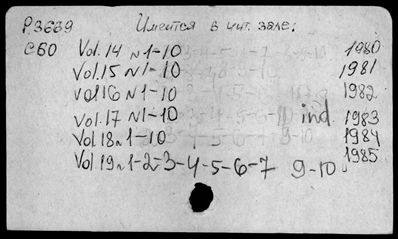 P3669 Имеется в чит. зале:
C60 Vol.14 N1-10 1980
Vol.15 N1-10 1981
Vol16 N1-10 1982
Vol.17 N1-10 ind. 1983
Vol.18 N1-10 1984
Vol 19 N1-2-3-4-5-6-7 9-10 1985